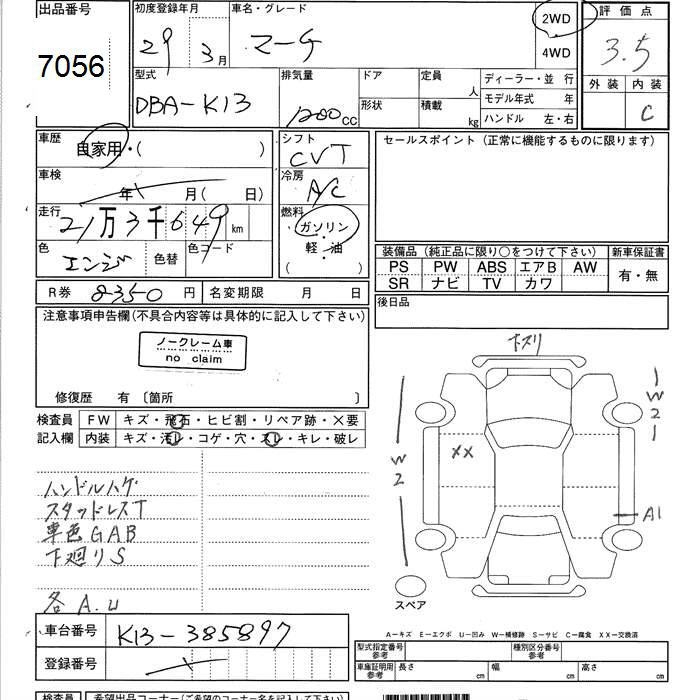 出品番号
7056
初度登録年月
29 3月
車名・グレード
マーチ
2WD
4WD
評価点
3.5
外装 内装
C
型式
DBA-K13
排気量
1200cc
ドア
形状
定員 人
積載 kg
ディーラー・並 行
モデル年式 年
ハンドル 左・右
車歴
自家用・( )
シフト
CVT
セールスポイント (正常に機能するものに限ります)
車検
年 月(日)
冷房
A/C
走行
21万3千649km
燃料
ガソリン
軽・油
( )
色
エンジ
色替
色コード
装備品 (純正品に限り○をつけて下さい)
新車保証書
PS PW ABS エアB AW
SR ナビ TV カワ
有・無
R券 8350円
名変期限 月 日
後日品
注意事項申告欄(不具合内容等は具体的に記入して下さい)
ノークレーム車
no claim
修復歴 有 〔箇所 〕
検査員
記入欄
FW キズ・飛石・ヒビ割・リペア跡・×要
内装 キズ・汚レ・コゲ・穴・スレ・キレ・破レ
下スリ
W2
XX
W2
A1
スペア
ハンドルハゲ
スタッドレスT
車色GAB
下廻りS
各A.U
A−キズ E−エクボ U−凹み W−補修跡 S−サビ C−腐食 XX−交換済
車台番号
K13-385897
登録番号
型式指定番号
参考
種別区分番号
参考
車庫証明用
参考
長さ cm 幅 cm 高さ cm
検査員
希望出品コーナー(ご希望のコーナー名を記入して下さい)